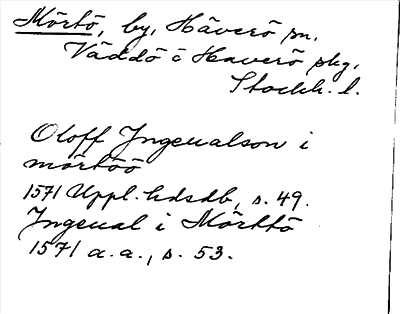 Mörtö, by, Häverö sn,
Väddö o Haverö skg,
Stockh. l.
Oloff Jngeualson i
mörtöö
1571 Uppl. hdsdb, s. 49.
Jngeual i Mörttö
1571 a.a., s. 53.